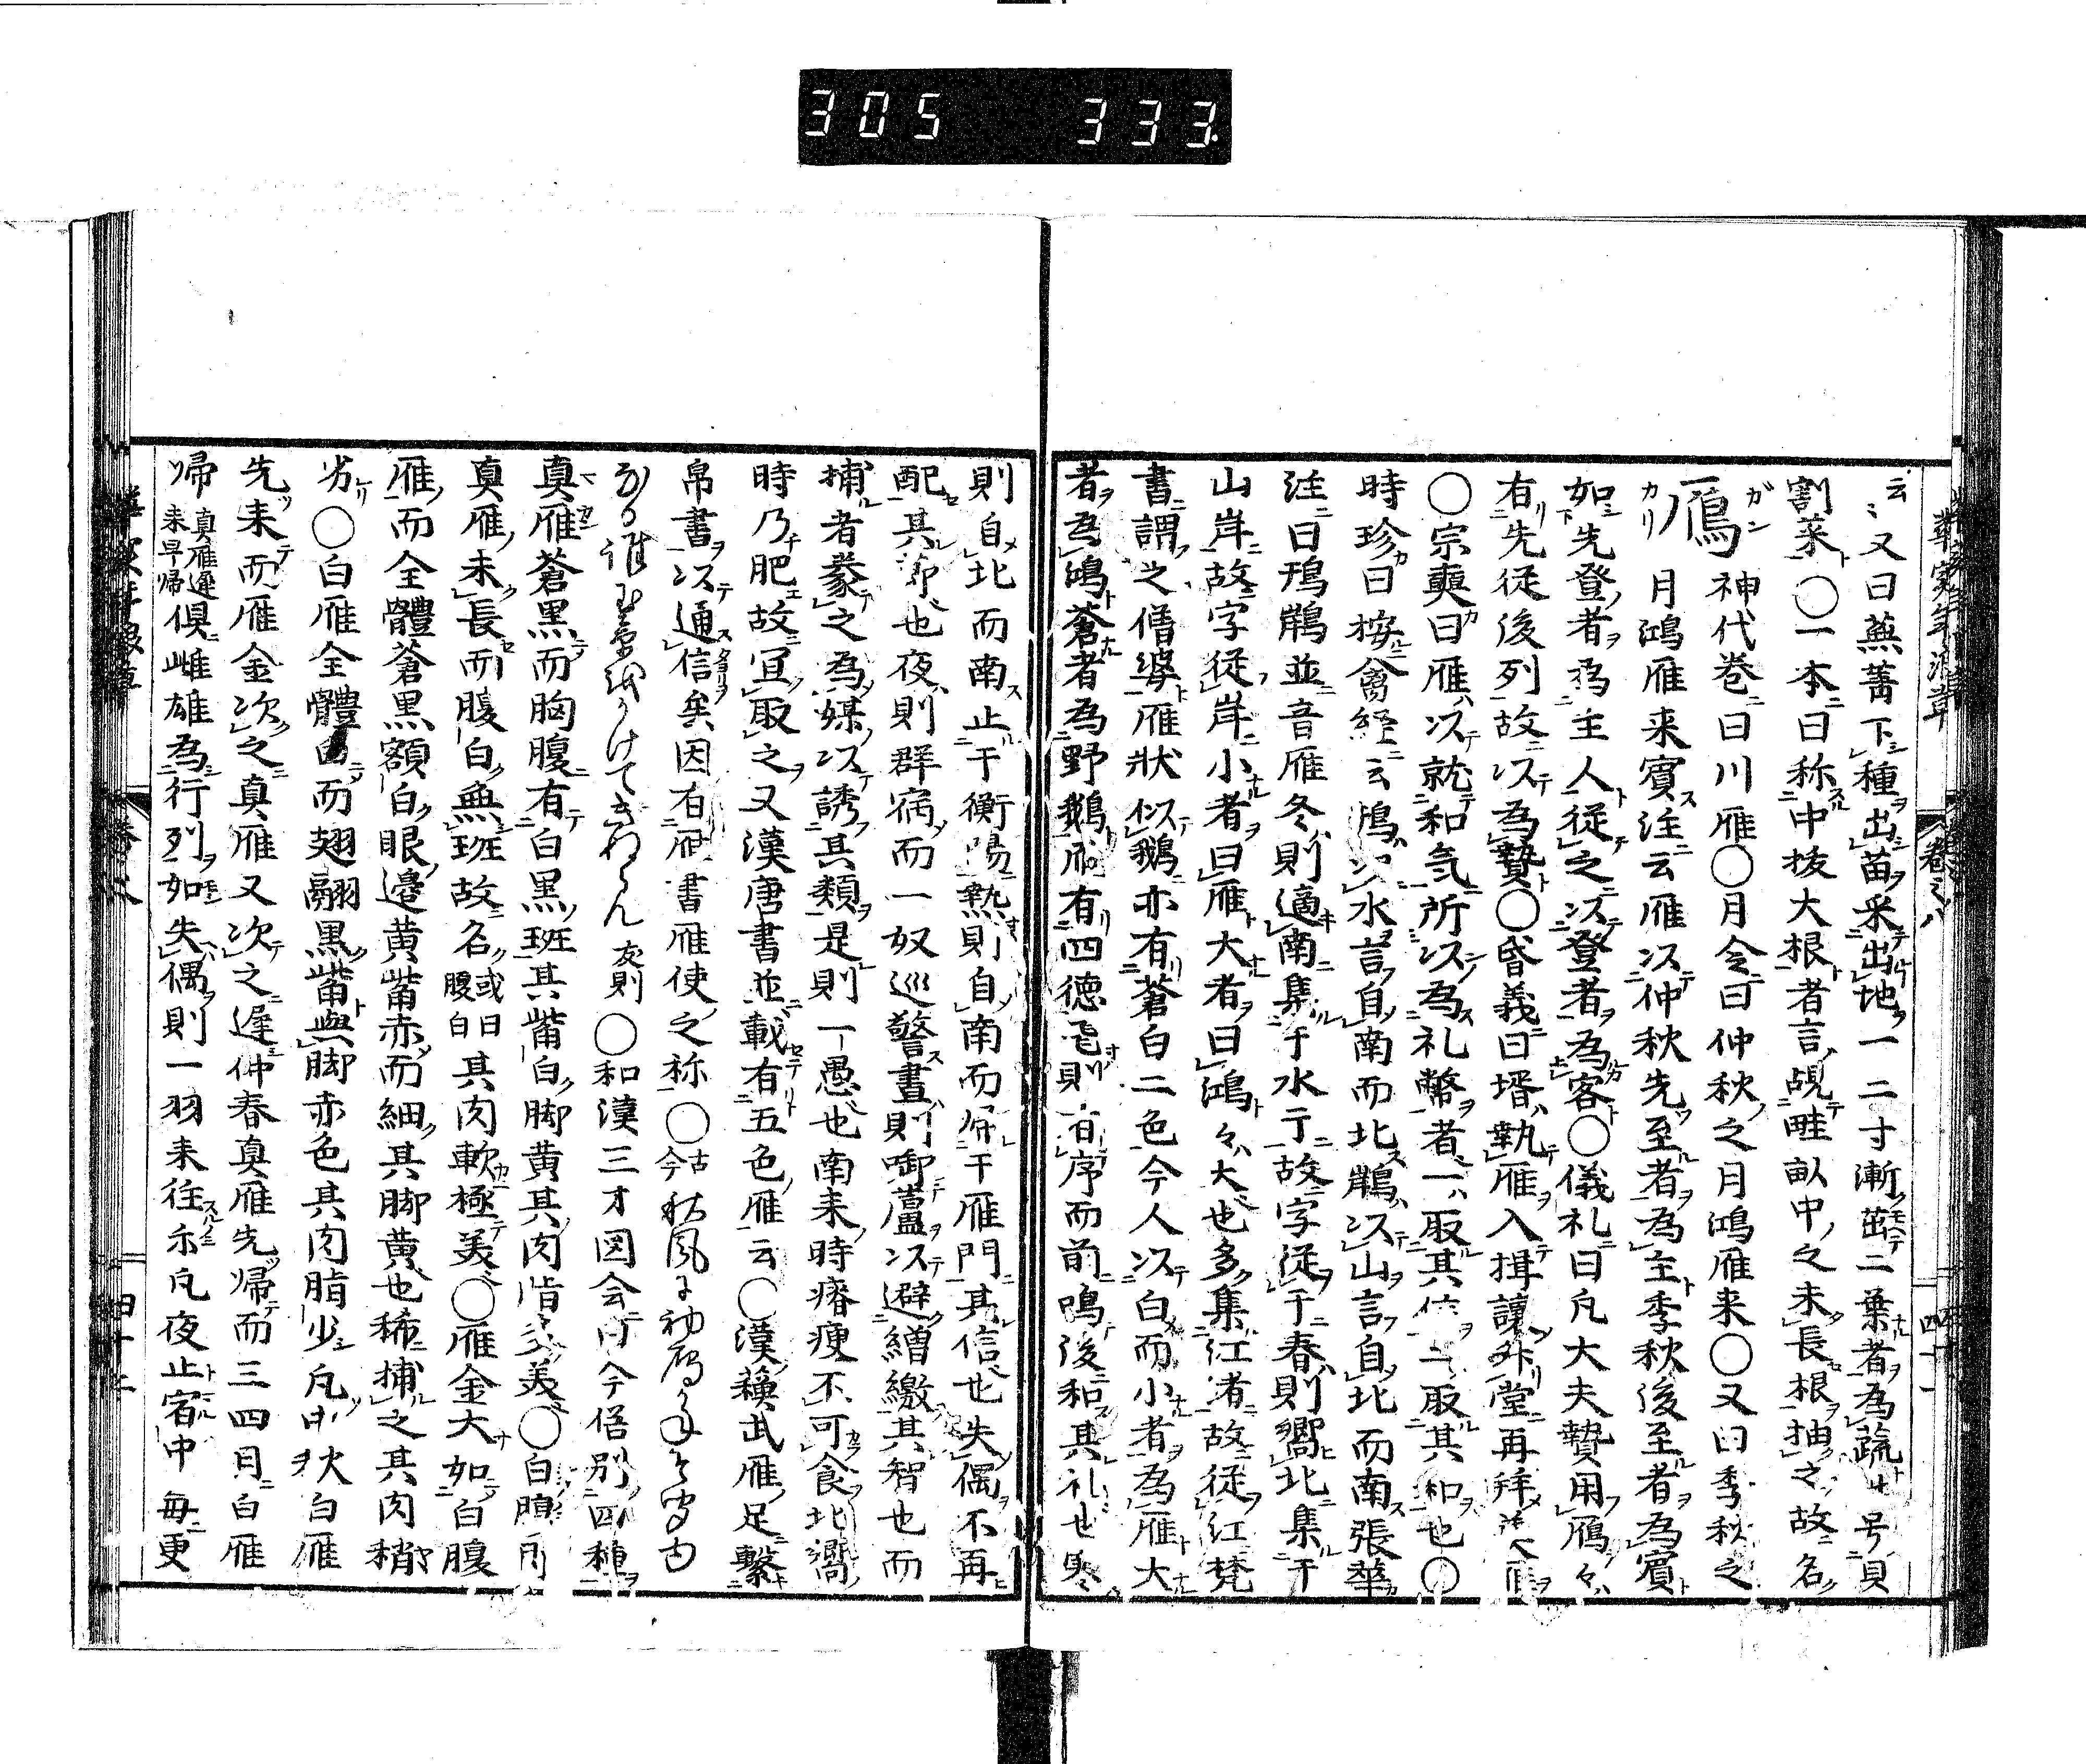 305 333
云々又曰蕪菁下種出苗采出地一二寸漸茁二葉者為蔬号貝
割菜○一本曰称中抜大根者言覘畦畝中之未長根抽之故名
鴈 神代巻曰川雁○月令曰仲秋之月鴻雁来○又曰季秋之
ガン
カリ
月鴻雁来賓注云雁以仲秋先至者為主季秋後至者為賓
如先登者為主人従之以登者為客○儀礼曰凡大夫贄用鴈々
有先従後列故以為贄○昏義曰壻執雁入揖讓升堂再拜
○宗奭曰雁以就和気所以為礼幣者一取其信二取其和也○
時珍曰按禽経云鳱以水言自南而北鳽以山言自北而南張華
注曰鳱鳽並音雁冬則適南集于水干故字従干春則嚮北集于
山岸故字従岸小者曰雁大者曰鴻々大也多集江渚故従江梵
書謂之僧婆雁状似鵝亦有蒼白二色今人以白而小者為雁大
者為鴻蒼者為野鵝雁有四徳飛則有序而前鳴後和其礼也寒
則自北而南止于衡陽熱則自南而帰于雁門其信也失偶不再
配其節也夜則群宿而一奴巡警昼則啣蘆以避繒繳其智也而
捕者豢之為媒以誘其類是則一愚也南来時瘠痩不可食北嚮
時乃肥故宜取之又漢唐書並載有五色雁云○漢蘇武雁足繋
帛書以通信矣因有雁書雁使之称○古今秋風に初雁かねそ聞ゆ
なる誰玉章をかけてきぬらん 友則 ○和漢三才図会曰今俗別四種
真雁蒼黒而胸腹有白黒斑其觜白脚黄其肉脂多美○白腹雁
真雁未長而腹白無斑故名或曰腰白其肉軟極美○雁金大如白腹
雁而全體蒼黒額白眼邉黄觜赤而細其脚黄也稀捕之其肉稍
劣○白雁全體白而翅翮黒觜與脚赤色其肉脂少凡中秋白雁
先来而雁金次之真雁又次之遅仲春真雁先帰而三四月白雁
帰 真雁遅来早帰 倶雌雄為行列如失偶則一羽来往尓凡夜止宿中毎更